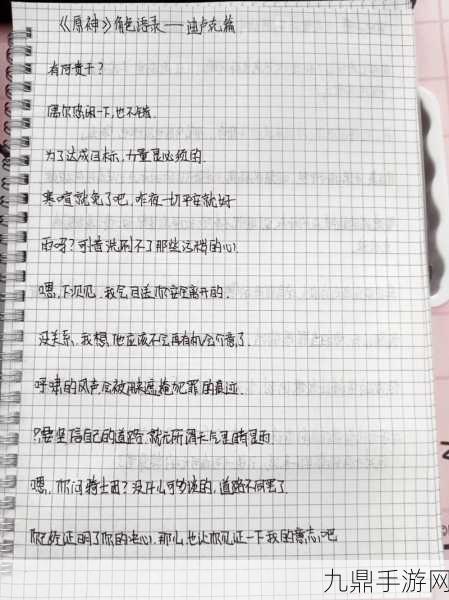 《原神》角色语录——迪卢克篇
有何贵干？
偶尔悠闲一下,也不错.
为了达成目标,力量是必须的.
寒喧就免了吧,昨夜一切平安就好
雨吗？可惜洗刷不了那些污秽的心.
嗯,下次见.我会目送你安全离开的.
没关系,我想,他应该不会再有机会介意了.
呼啸的风声,会被用来遮掩犯罪的痕迹.
只要坚信自己的道路,就无所谓天气是晴是雨
嗯,你问骑士团？没什么可多谈的,道路不同罢了.
你已经证明了你的决心.那么,也让你见证一下我的意志吧
九鼎手游网